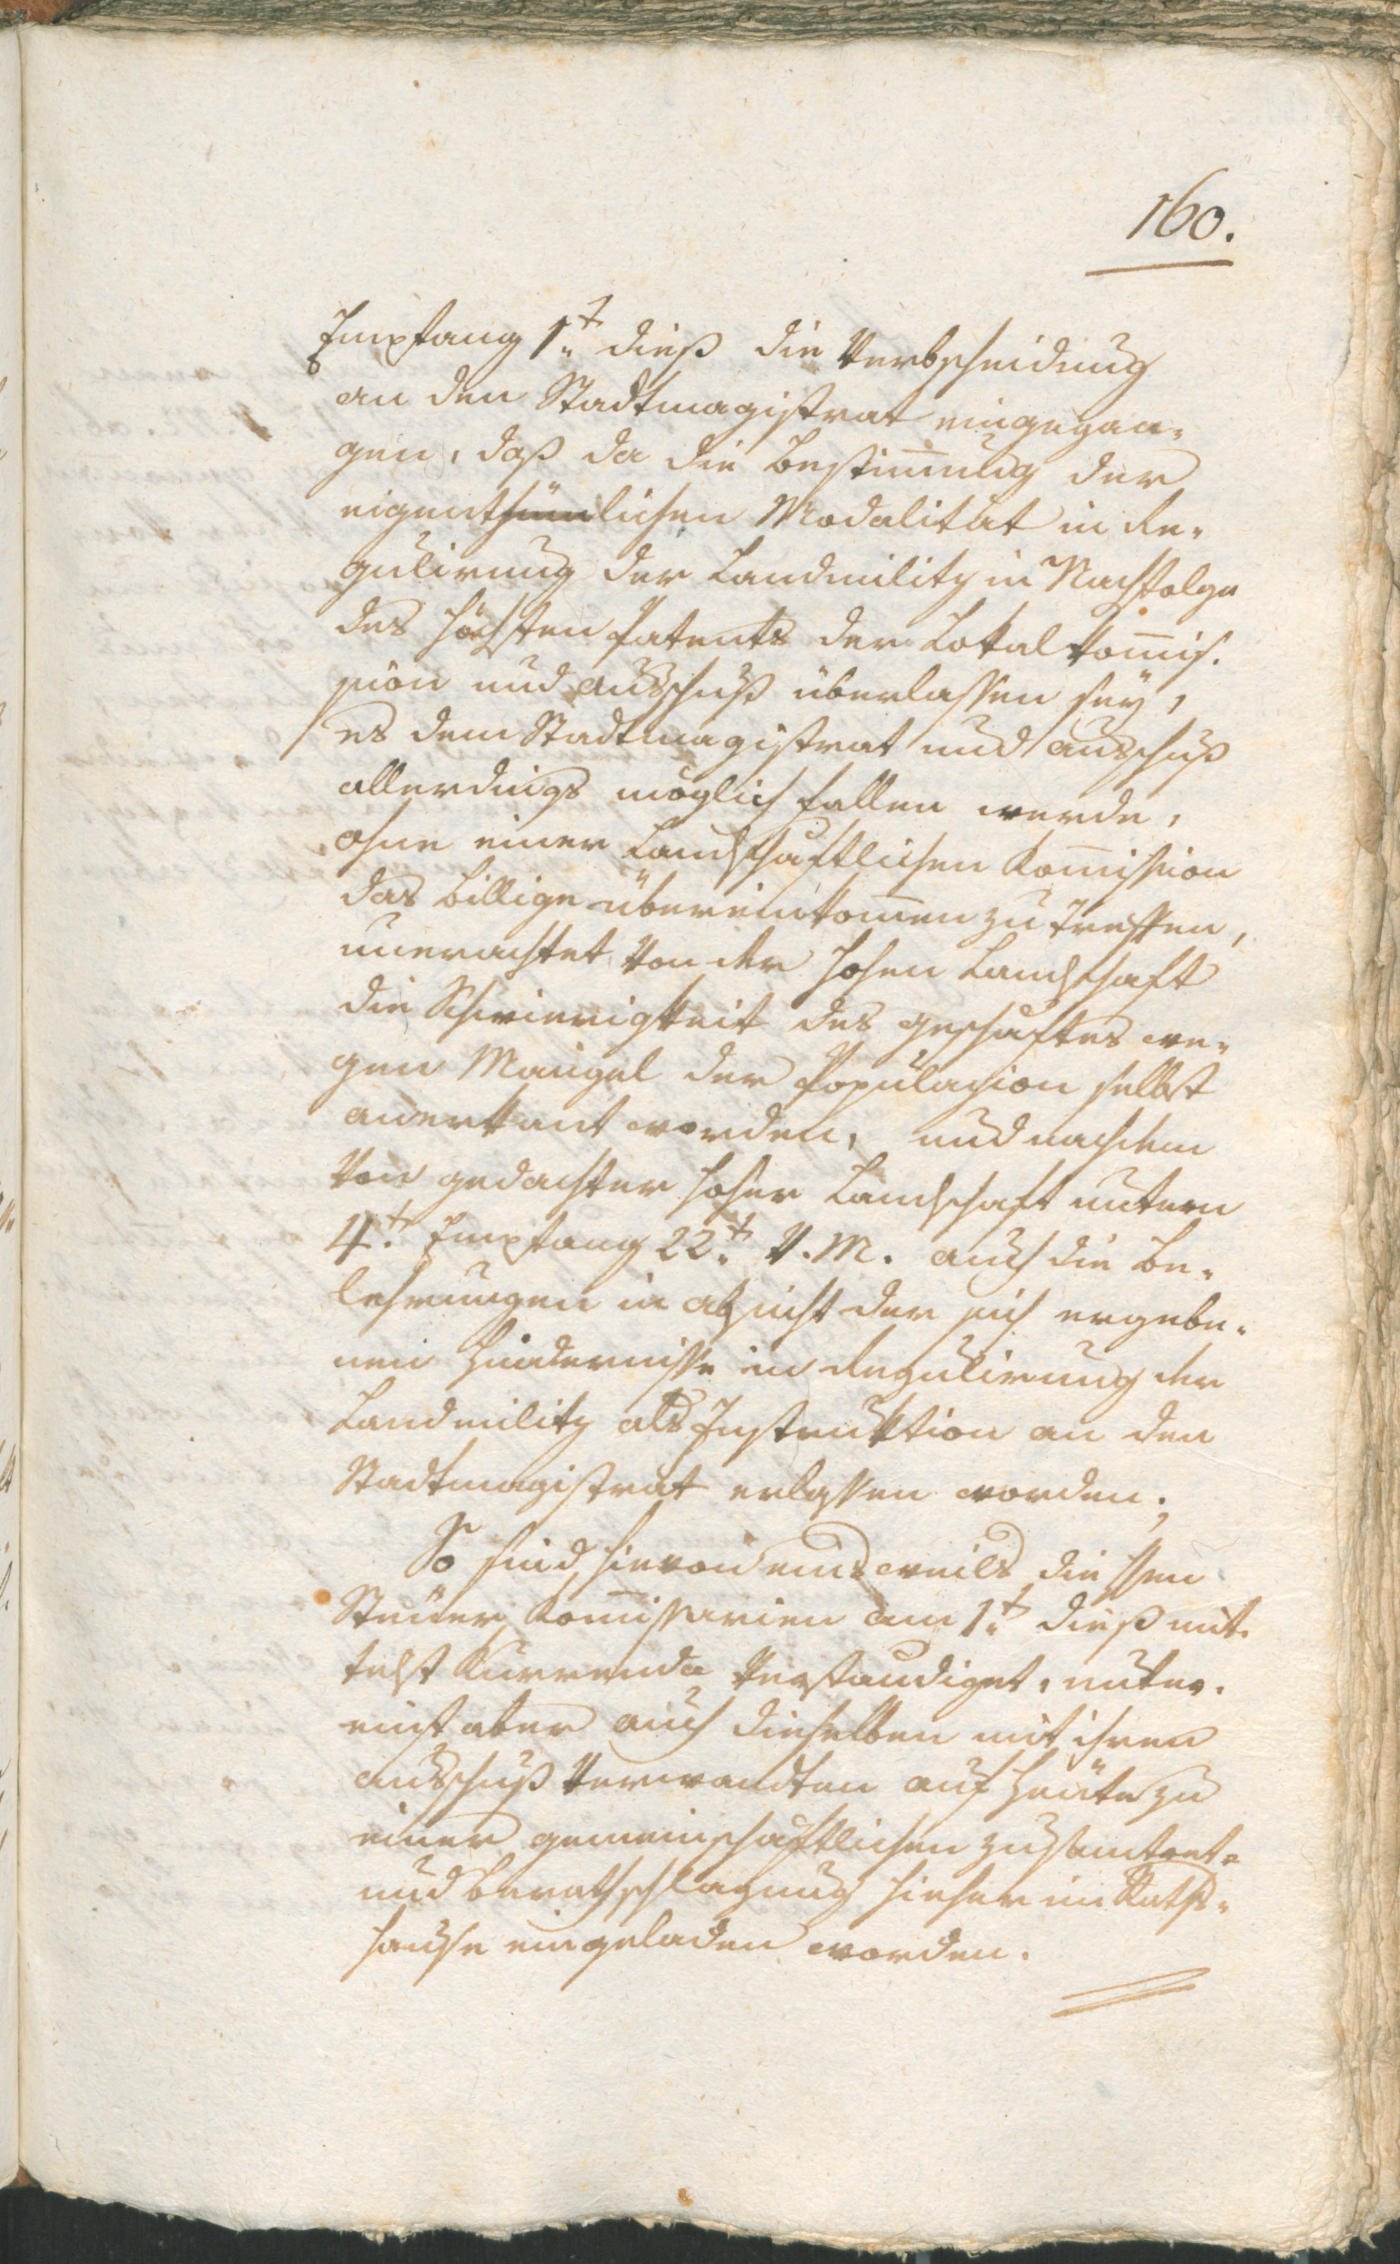 160.
Empfang 1t. dieß die Verbscheidung
an den Stadtmagistrat eingegan-
gen, daß da die Bestim̅ung der
eigenthümlichen Modalität in Re-
gulirung der Landmilitz in Nachfolge
des höchsten Patents der Lokalkom̅is-
sion und Ausschuß überlassen seÿ,
es dem Stadtmagistrat und Ausschuß
allerdings möglich fallen werde,
ohne einer Landschaftlichen Kom̅ission
das billige übereinkom̅en zu treffen,
unerachtet von der hohen Landschaft
die Schwierigkeit des Geschäftes we-
gen Mangel der Populazion selbst
anerkant worden, und nachdem
von gedachter hoher Landschaft untern
4t. Empfang 22t. v. M. auch die Be-
lehrungen in absicht der sich ergebe-
nen Hindernisse in Regulirung der
Landmilitz als Instruktion an den
Stadtmagistrat erlassen worden;
So sind hievon eins weils die Hen
Steüer Kom̅issarien am 1t. dieß mit-
telst Kurrenda verständiget, unter-
einst aber auch dieselben mit ihren
Ausschuß Verwandten auf heüte zu
einer gemeinschaftlichen zusamtret-
und berathschlagung hieher im Rath-
hause eingeladen worden.